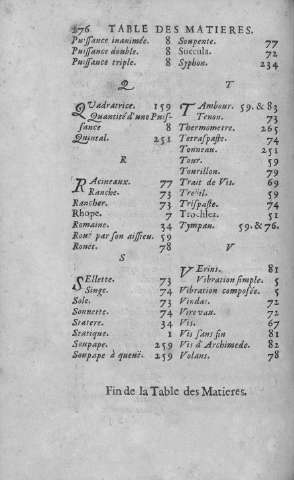 276 TABLE DES MATIERES.
Puissance inanimée. 8
Puissance double. 8
Puissance triple. 8
Q
Quadratrice. 159
Quantité d'une Puis-
sance 8
Quintal. 251
R
Racineaux. 77
Ranche. 73
Rancher. 73
Rhope. 7
Romaine. 34
Roue par son aissieu. 59
Rouet. 78
S
Sellette. 73
Singe. 74
Sole. 73
Sonnette. 74
Statere. 34
Statique. 1
Soupape. 259
Soupape à queuë. 259
Soupente. 77
Succula. 72
Syphon. 234
T
Tambour. 59. & 83
Tenon. 73
Thermometre. 265
Tetraspaste. 74
Tonneau. 251
Tour. 59
Tourillon. 79
Trait de Vis. 69
Treüil. 59
Trispaste. 74
Trochlea. 51
Tympan. 59. & 76.
V
Verins. 81
Vibration simple. 5
Vibration composée. 5
Vindas. 72
Virevau. 72
Vis. 67
Vis sans fin 81
Vis d'Archimede. 82
Volans. 78
Fin de la Table des Matieres.